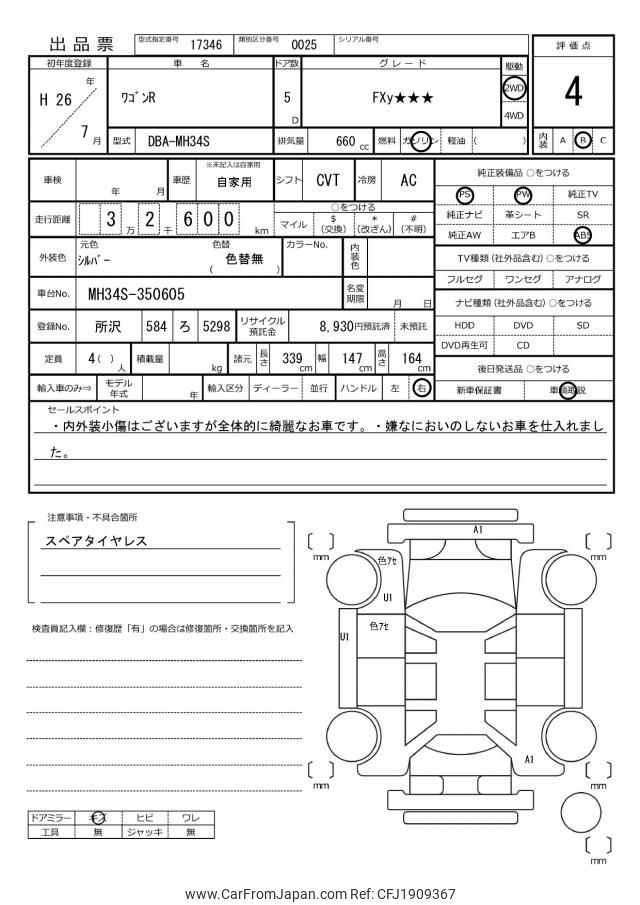 出品票
型式指定番号 17346 類別区分番号 0025 シリアル番号
評価点
4
内装 A B C
初年度登録 車名 ドア数 グレード 駆動
H 26 年 7 月
ワゴンR 5 D FXy★★★ 2WD
4WD
型式 DBA-MH34S 排気量 660 cc 燃料 ガソリン 軽油 ( )
車検 年 月 車歴 ※未記入は自家用 自家用 シフト CVT 冷房 AC
走行距離 3 万 2 千 6 0 0 km
○をつける
マイル $(交換) *(改ざん) #(不明)
外装色 元色 シルバー 色替 ( 色替無 ) カラーNo. 内装色
車台No. MH34S-350605 名変期限 月 日
登録No. 所沢 584 ろ 5298 リサイクル預託金 8,930円預託済 未預託
定員 4 ( ) 人 積載量 kg 諸元 長さ 339 cm 幅 147 cm 高さ 164 cm
輸入車のみ⇒ モデル年式 年 輸入区分 ディーラー 並行 ハンドル 左 右
純正装備品 ○をつける
PS PW 純正TV
純正ナビ 革シート SR
純正AW エアB ABS
TV種類(社外品含む) ○をつける
フルセグ ワンセグ アナログ
ナビ種類(社外品含む) ○をつける
HDD DVD SD
DVD再生可 CD
後日発送品 ○をつける
新車保証書 車輌取説
セールスポイント
・内外装小傷はございますが全体的に綺麗なお車です。・嫌なにおいのしないお車を仕入れまし
た。
注意事項・不具合箇所
スペアタイヤレス
検査員記入欄：修復歴「有」の場合は修復箇所・交換箇所を記入
A1
色アセ
U1
色アセ
U1
A1
mm
mm
mm
mm
mm
ドアミラー キズ ヒビ ワレ
工具 無 ジャッキ 無
www.CarFromJapan.com Ref: CFJ1909367